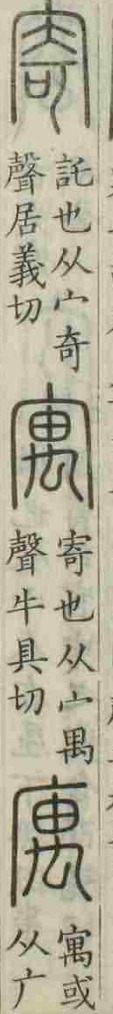 寄
託也从宀奇
聲居義切
寓
寄也从宀禺
聲牛具切
庽
寓或
从广